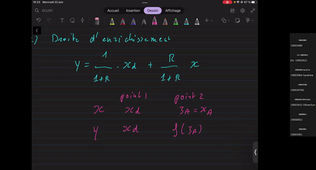 Accueil Insertion Dessin Affichage
) Droite d'enrichissement
y = 1/(1+R) . xd + R/(1+R) x
point 1 point 2
x xd zA = xA
y xd f(zA)